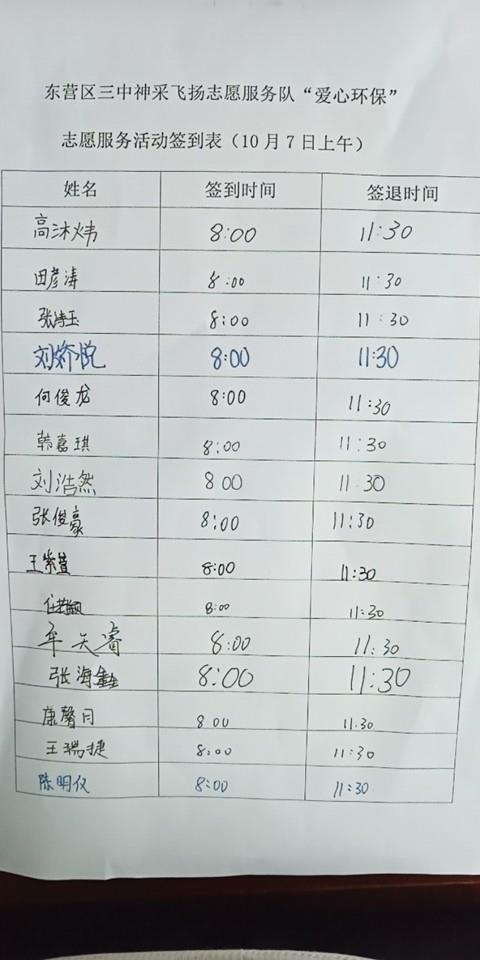 东营区三中神采飞扬志愿服务队“爱心环保”
志愿服务活动签到表（10月7日上午）
姓名 签到时间 签退时间
高沐炜 8:00 11:30
田彦涛 8:00 11:30
张诗玉 8:00 11:30
刘娇悦 8:00 11:30
何俊龙 8:00 11:30
韩嘉琪 8:00 11:30
刘浩然 8 00 11 30
张俊豪 8:00 11:30
王紫萱 8:00 11:30
8:00 11:30
天睿 8:00 11:30
张海 8:00 11:30
康馨月 8 00 11.30
王瑞捷 8:00 11:30
陈明仪 8:00 11:30